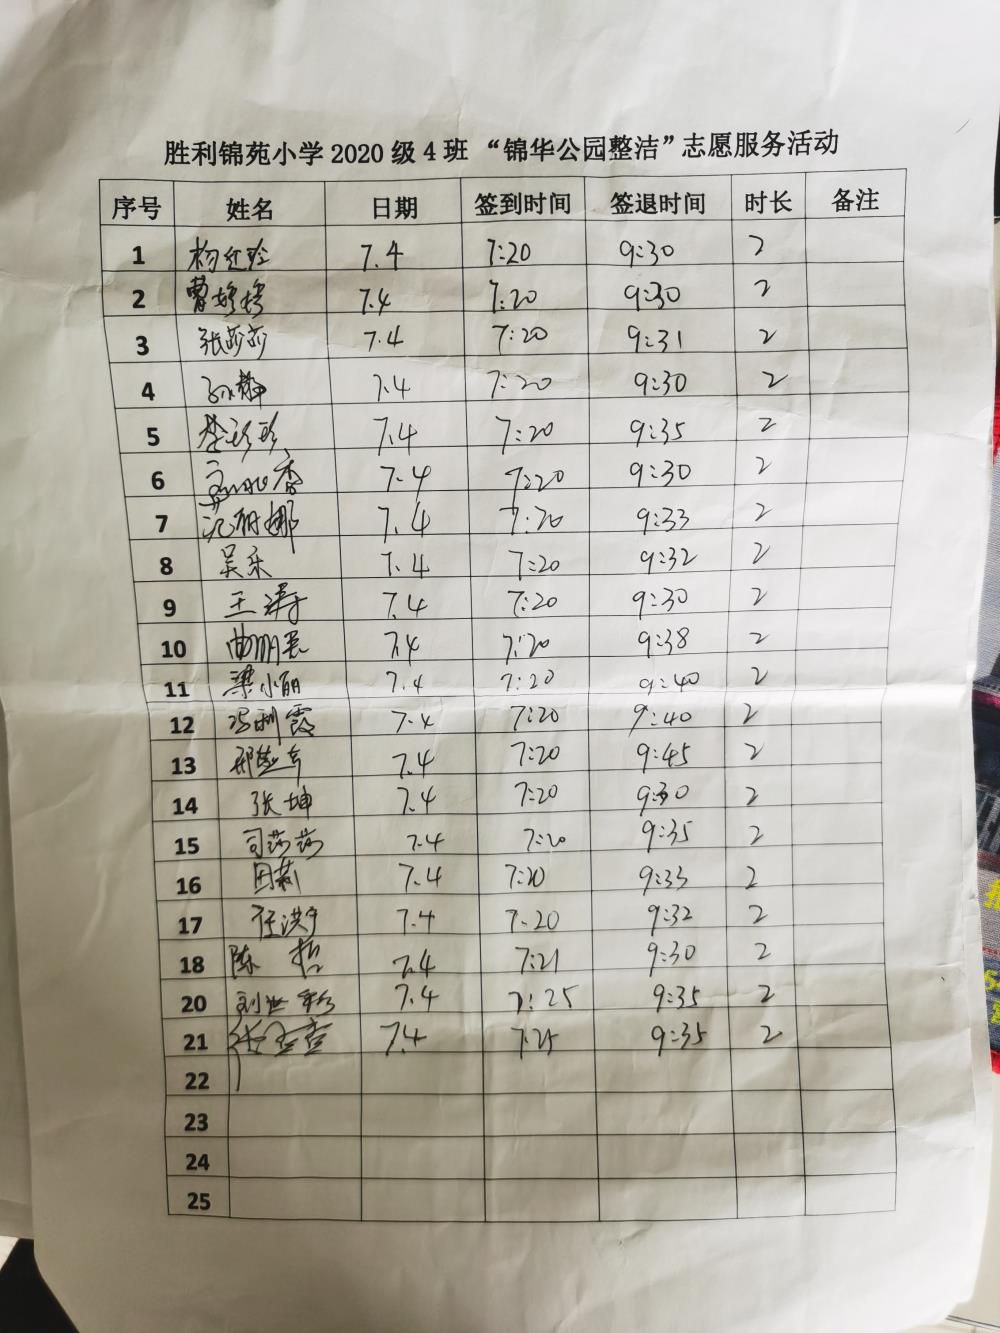 胜利锦苑小学 2020 级 4 班 “锦华公园整洁”志愿服务活动
序号 姓名 日期 签到时间 签退时间 时长 备注
1 杨红玲 7.4 7:20 9:30 2
2 曹婷婷 7.4 7:20 9:30 2
3 张莎莎 7.4 7:20 9:31 2
4 孙静 7.4 7:20 9:30 2
5 李珍珍 7.4 7:20 9:35 2
6 7.4 7:20 9:30 2
7 范丽娜 7.4 7:20 9:33 2
8 吴乐 7.4 7:20 9:32 2
9 王涛 7.4 7:20 9:30 2
10 曲丽君 7.4 7:20 9:38 2
11 梁小丽 7.4 7:20 9:40 2
12 冯利霞 7.4 7:20 9:40 2
13 7.4 7:20 9:45 2
14 张坤 7.4 7:20 9:30 2
15 司莎莎 7.4 7:20 9:35 2
16 田莉 7.4 7:20 9:33 2
17 任洪宁 7.4 7.20 9:32 2
18 陈哲 7.4 7:21 9:30 2
20 7.4 7:25 9:35 2
21 7.4 7:25 9:35 2
22
23
24
25